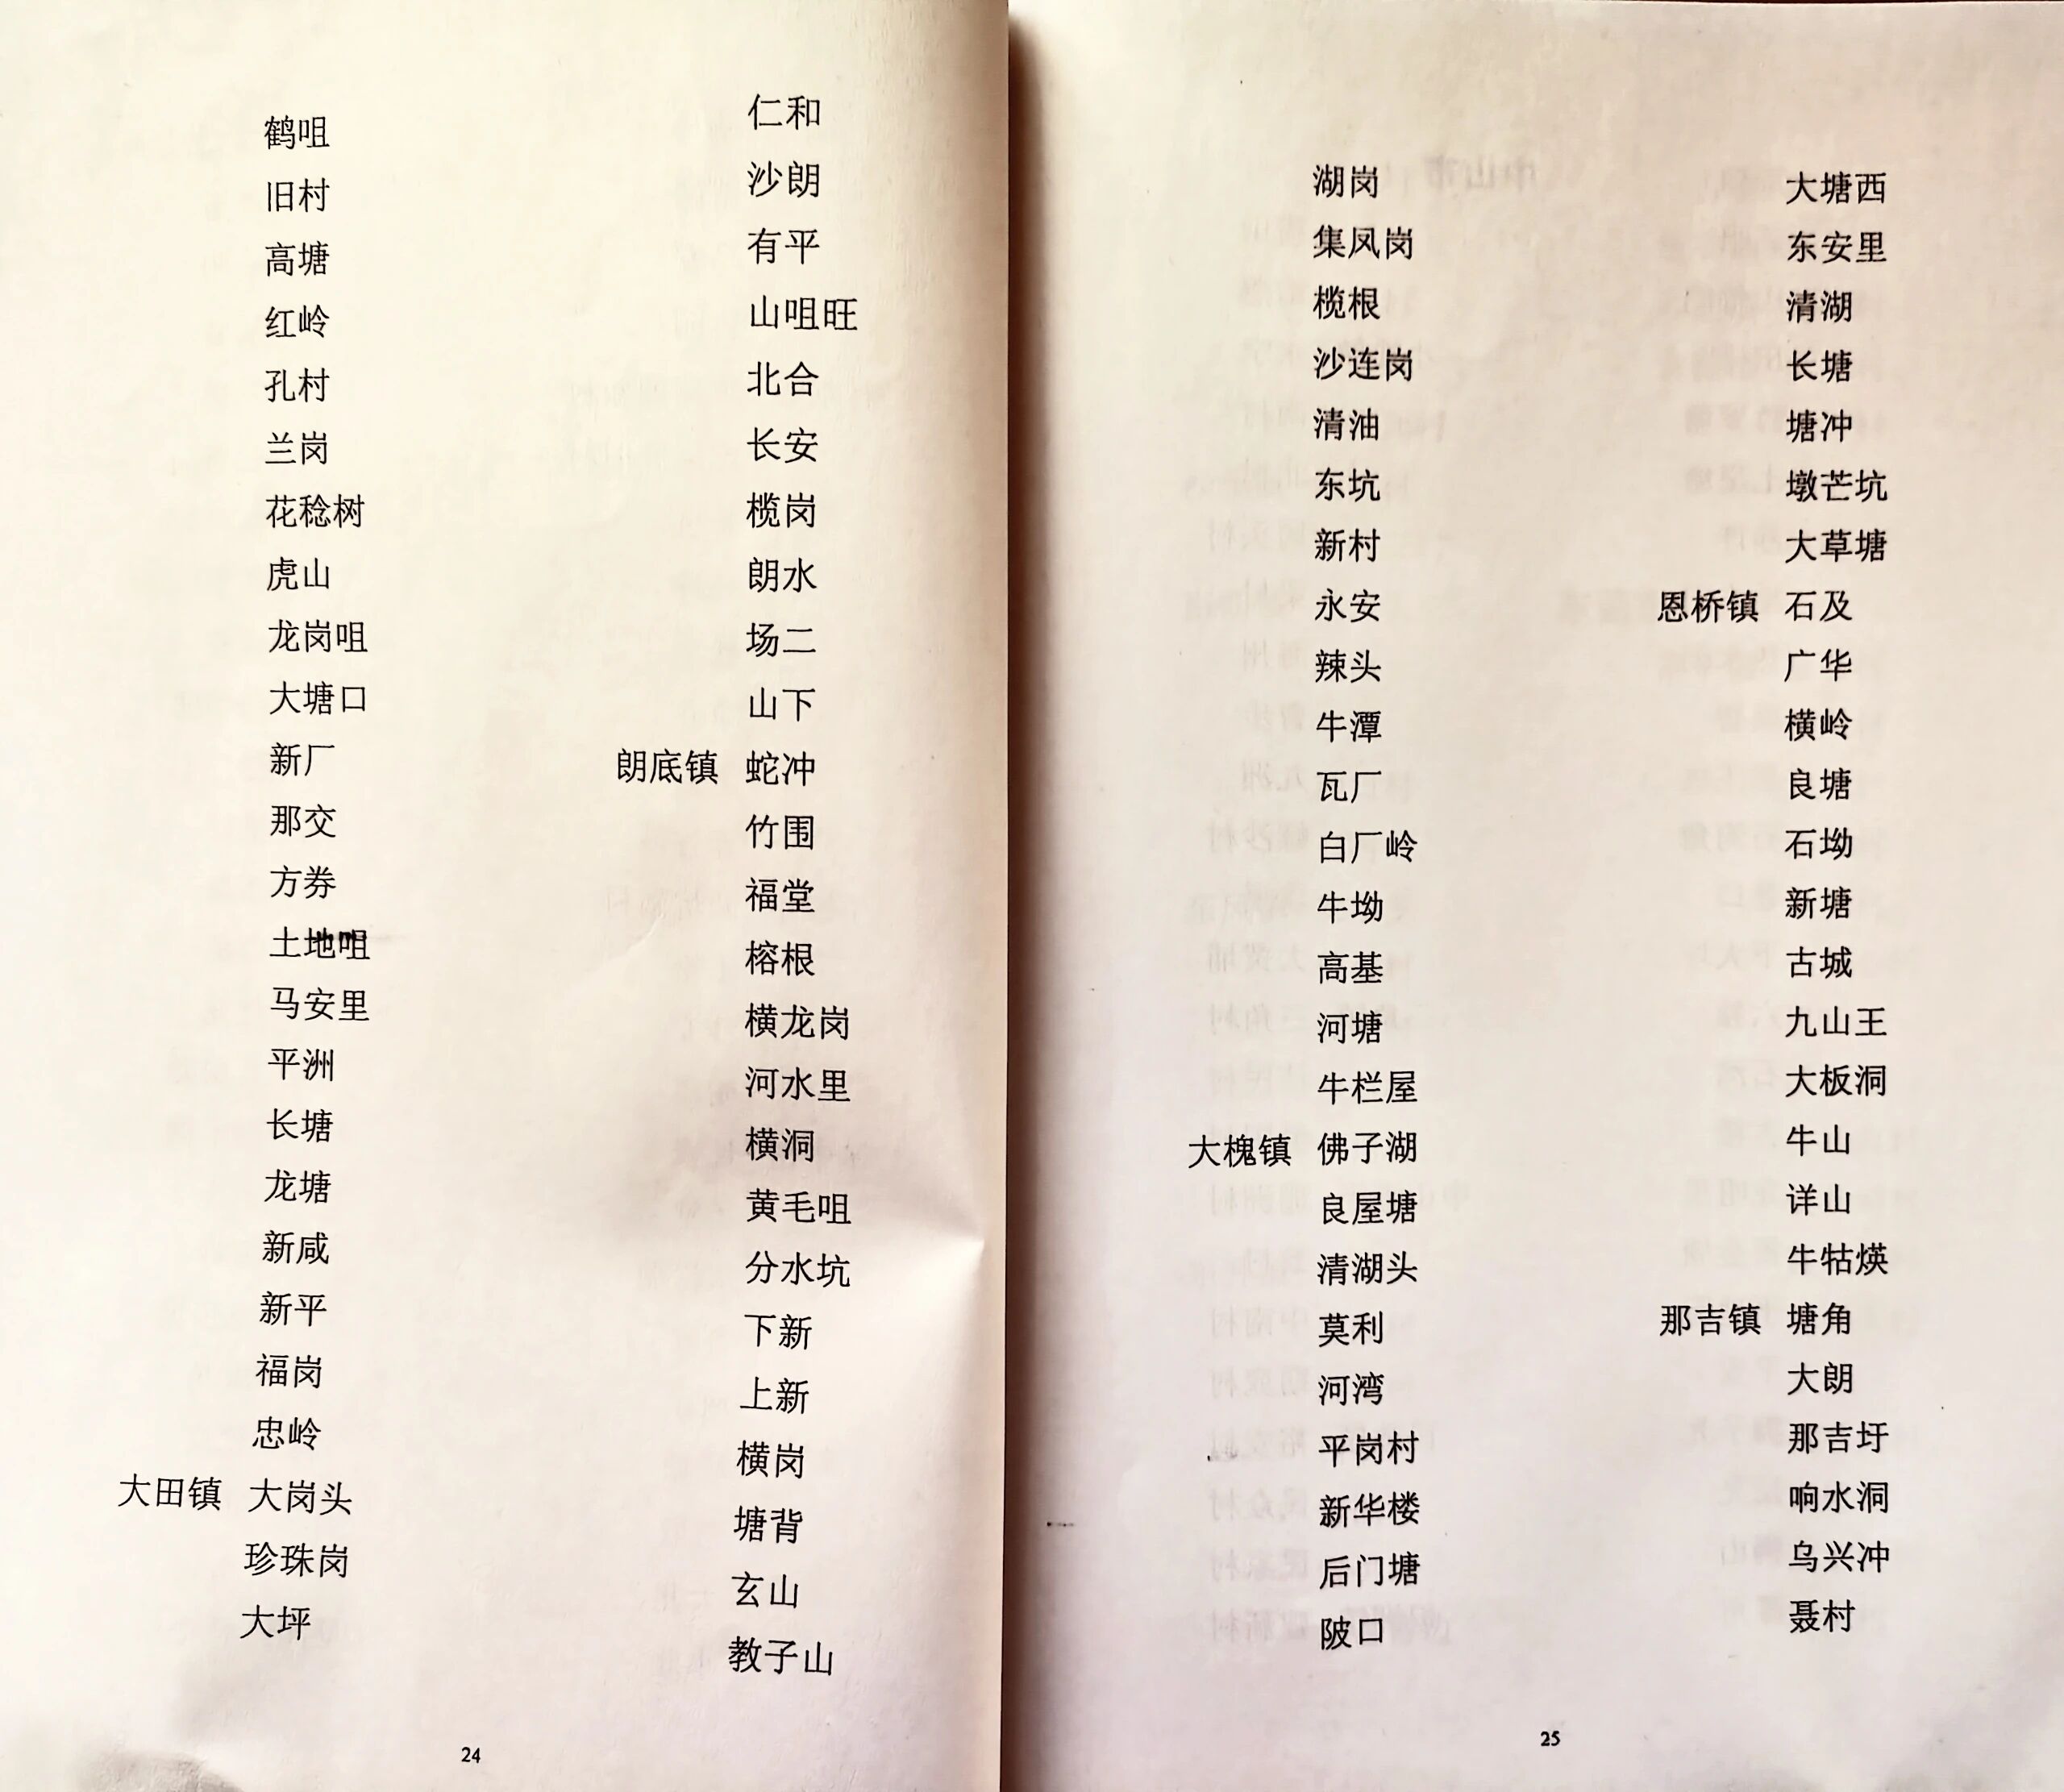 鹤咀
旧村
高塘
红岭
孔村
兰岗
花稔树
虎山
龙岗咀
大塘口
新厂
那交
方券
土地咀
马安里
平洲
长塘
龙塘
新咸
新平
福岗
忠岭
大田镇 大岗头
珍珠岗
大坪
仁和
沙朗
有平
山咀旺
北合
长安
榄岗
朗水
场二
山下
朗底镇 蛇冲
竹围
福堂
榕根
横龙岗
河水里
横洞
黄毛咀
分水坑
下新
上新
横岗
塘背
玄山
教子山
24
湖岗
集凤岗
榄根
沙连岗
清油
东坑
新村
永安
辣头
牛潭
瓦厂
白厂岭
牛坳
高基
河塘
牛栏屋
大槐镇 佛子湖
良屋塘
清湖头
莫利
河湾
平岗村
新华楼
后门塘
陂口
大塘西
东安里
清湖
长塘
塘冲
墩芒坑
大草塘
恩桥镇 石及
广华
横岭
良塘
石坳
新塘
古城
九山王
大板洞
牛山
详山
牛牯煐
那吉镇 塘角
大朗
那吉圩
响水洞
乌兴冲
聂村
25